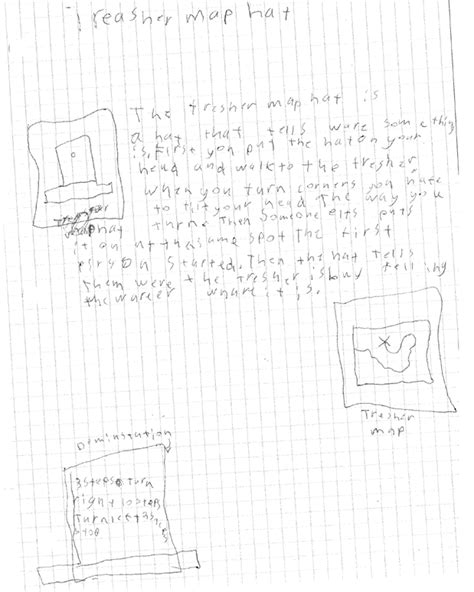 Treasher map hat
The tresher map hat is
a hat that tells ware something
is. First you put the hat on your
head and walk to the tresher
When you turn corners you have
to tilt your head the way you
turne. Then someone elts puts
it on at the same spot the first
person started. Then the hat tells
them were the tresher is buy telling
the warer whare it is.
map hat
Tresher
map
Deminstration
3 steps turn
right 10 steps
turn left 3 steps
stop